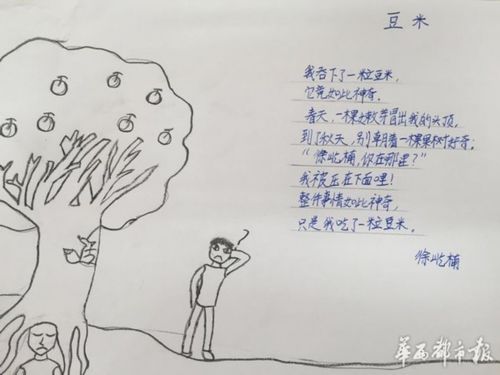 豆米
我吞下了一粒豆米，
它竟如此神奇。
春天，一棵嫩芽冒出我的头顶，
到了秋天，别人朝着一棵果树好奇。
“徐屹楠，你在哪里？”
我被压在下面哩！
整件事情如此神奇，
只是我吃了一粒豆米。
徐屹楠
?
华西都市报